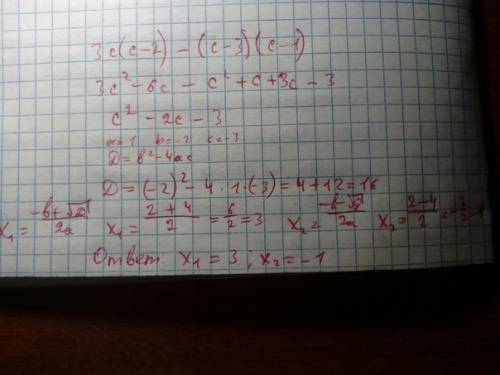 3c(c-2) - (c-3)(c-1)
3c² - 6c - c² + c + 3c - 3
c² - 2c - 3
a=1 b=-2 c=-3
D = b² - 4ac
D = (-2)² - 4 · 1 · (-3) = 4 + 12 = 16
x₁ = (-b+√D)/2a x₁ = (2+4)/2 = 6/2 = 3 x₂ = (-b-√D)/2a x₂ = (2-4)/2 = -2/2 = -1
Ответ x₁ = 3 ; x₂ = -1